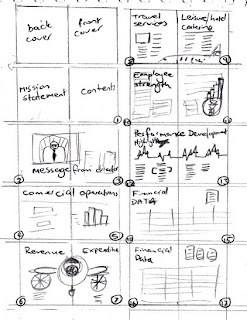 back cover
front cover
Travel services
Leisure/hotel
8
9
Mission statement
Contents
1
Employee strength
10
11
Message from
2
3
Performance Development Highlights
12
13
Comercial operations
4
5
Financial DATA
14
15
Revenue
Expenditure
6
7
Financial Data
16
17